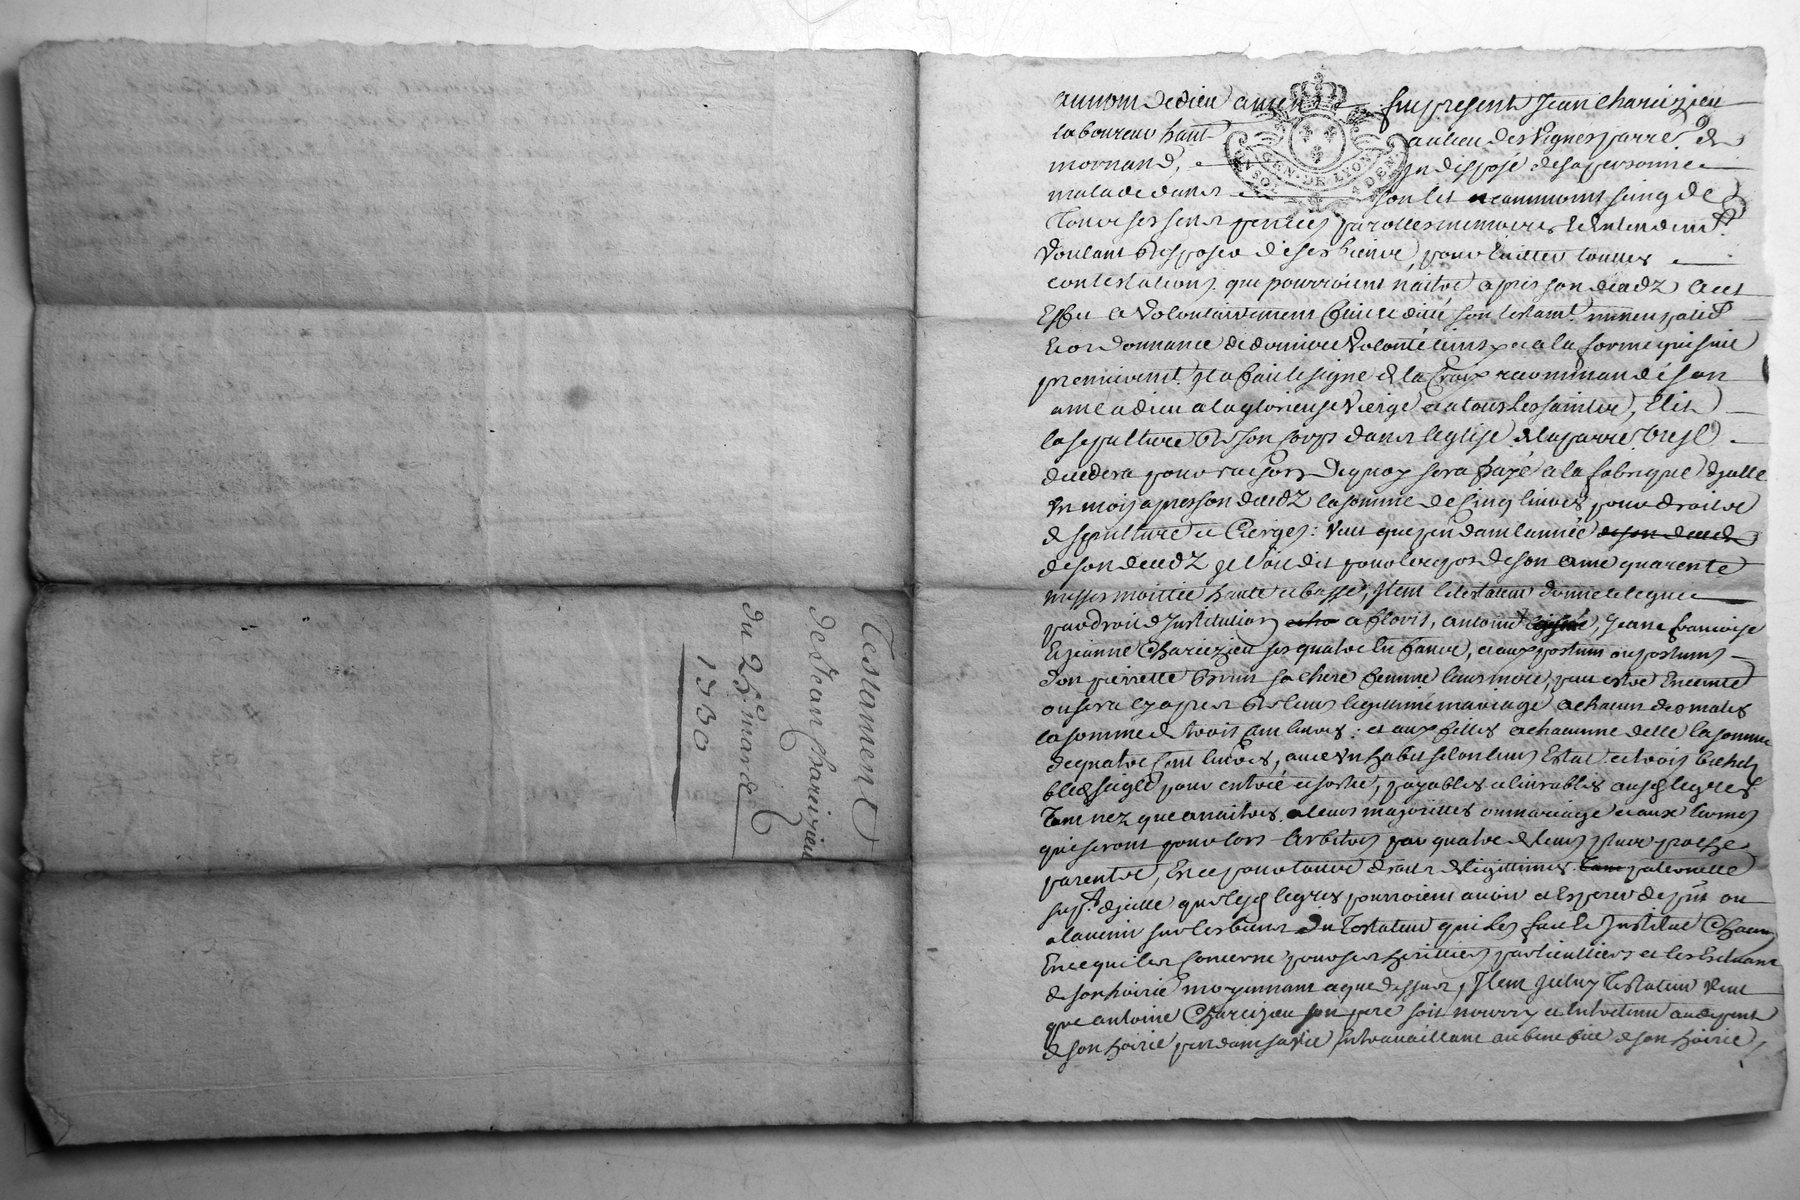 Testament
de Jean Chareizieu
du 25e mards
1730
GEN. DE LYON
SOL 4 DEN
au nom de dieu amen fut present Jean Chareizieu
laboureur hant au lieu des Vignes parre de
mornand, indisposé de sa personne
malade dans son lit neanmoins saing de
tous ses sens pensées parolles memoires et entendemt
Voulant disposer de ses biens, pour éviter toutes
contestations que pourroient naitre apres son decedz a cet
Effet a Volontairement fait et dicté son testamt nuncupatif
Et ordonnance de derniere Volonté ainsy et a la forme qui suit
premieremt Il a fait le signe de la Croix recommandé son
ame a dieu a la glorieuse Vierge et a tous les saints, Elit
la sepulture de son corps dans leglise de la parre ou Il
decedera pour raison de quoy sera payé a la fabrique dycelle
Un mois apres son decedz la somme de cinq livres pour droits
de sepulture et Cierges: Veut que pendant lannée de son decedz
de son decedz Il soit dit pour le repos de son ame quarente
messes moittié haute et basse, Item le testateur donne et legue
par droit dInstitution a floris, antoine, Jeane francoise
Et jeanne Chareizieu ses quatre Enfants, et aux postum ou postums
don pierrette Brun sa chere femme leur mere, peut estre Enceinte
ou sera cy apres de leur legitime mariage a chacun des males
la somme de trois cent livres; et aux filles a chacunne delle la somme
de quatre cent livres, avec un habit selon leur Estat et trois bichets
bled seigle pour entrée et sortie, payables et livrables ausd legres
tant nez que a naitres a leurs majorittes ou mariage et aux termes
qui seront pour lors arbitres par quatre de leurs plus proches
parents, Et ce pour tous droits de legittimes paternelle
supt dycelle que lesd legres pourroient avoir et Esperer de pnt ou
a lavenir sur les biens du Testateur qui les fait et Institue Chacun
En ce qui les concerne pour ses heritiers particulliers et les Excluant
de son hoirie moyennant ce que dessus, Item Icelluy Testateur veut
que antoine Chareizieu son pere soit nourry et Entretenu aux depens
de son hoirie pendant sa vie En travaillant au benefice de son hoirie,